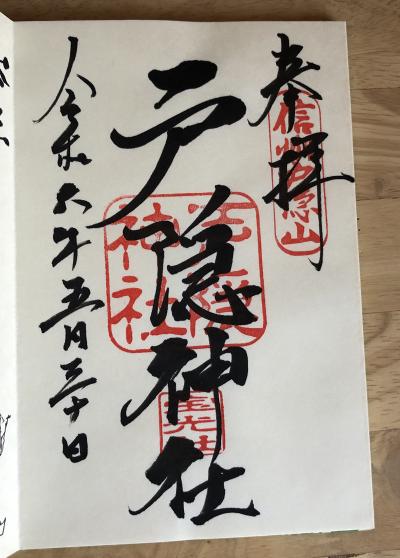 奉拝
信州戸隠山
戸隠神社
戸隠
神社
宝光社
令和六年五月三十日